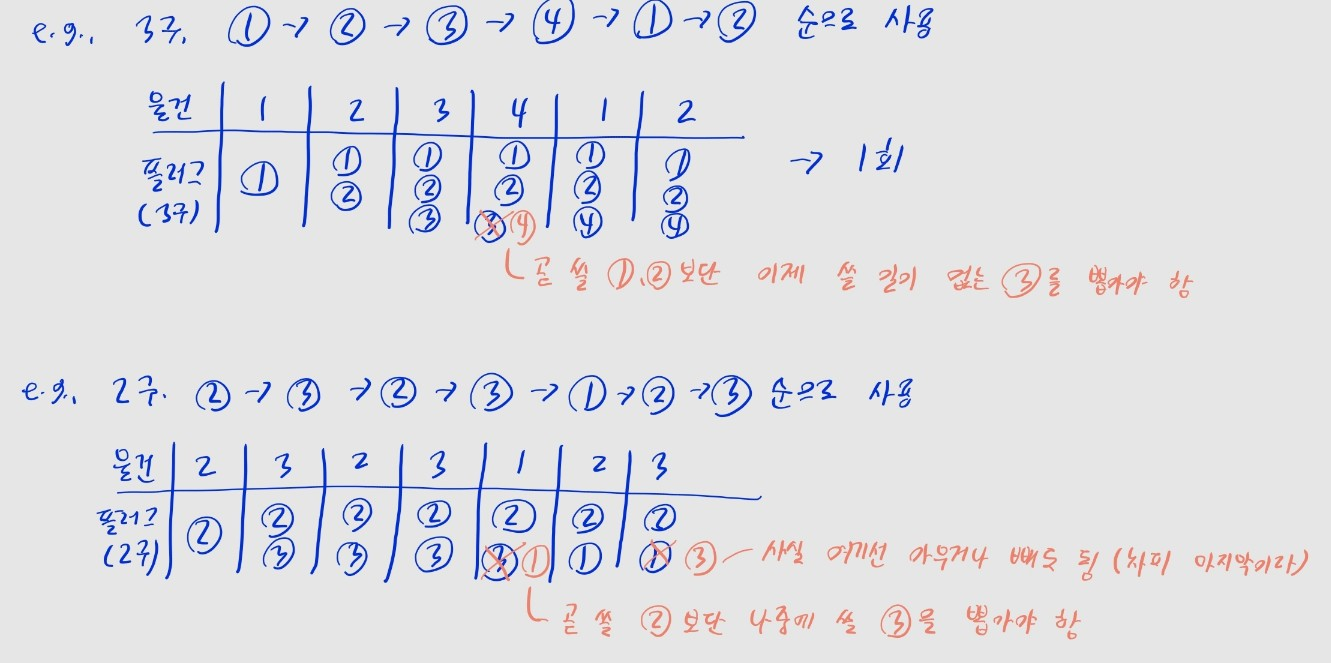 e.g., 3구, ① → ② → ③ → ④ → ① → ② 순으로 사용
물건 1 2 3 4 1 2
플러그 ① ① ① ① ① ① → 1회
② ② ② ② ②
(3구) ③ ③ ④ ④ ④
곧 쓸 ①,② 보단 이제 쓸 일이 없는 ③를 뽑아야 함
e.g., 2구. ② → ③ → ② → ③ → ① → ② → ③ 순으로 사용
물건 2 3 2 3 1 2 3
플러그 ② ② ② ② ② ② ②
(2구) ③ ③ ③ ③ ① ① ① ③ 사실 여기선 아무거나 빼도 됨 (차피 마지막이라)
곧 쓸 ② 보단 나중에 쓸 ③을 뽑아야 함